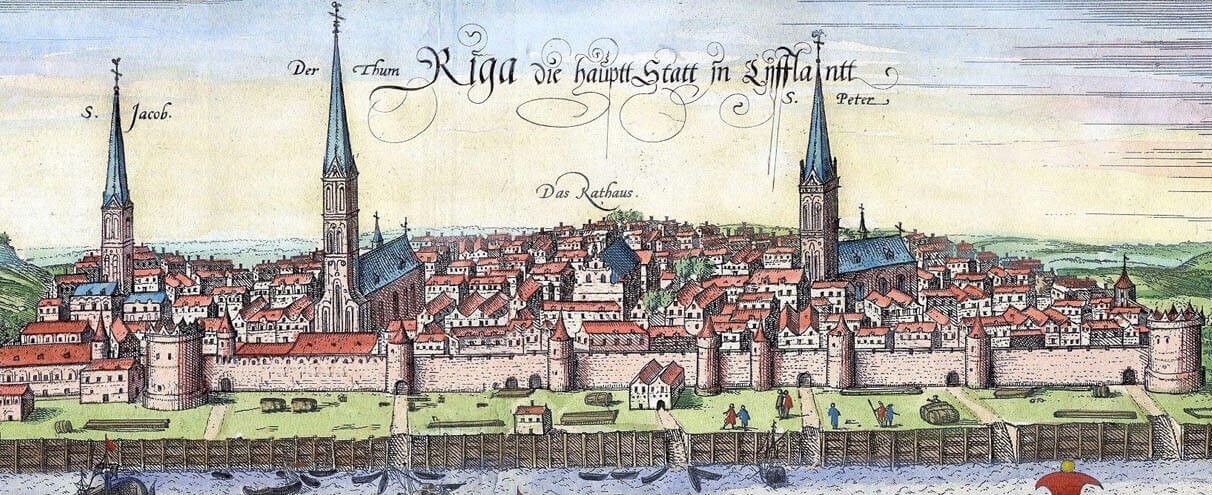 Riga die hauptt Statt in Lyfflantt
Der Thum
S. Jacob.
S. Peter
Das Rathaus.